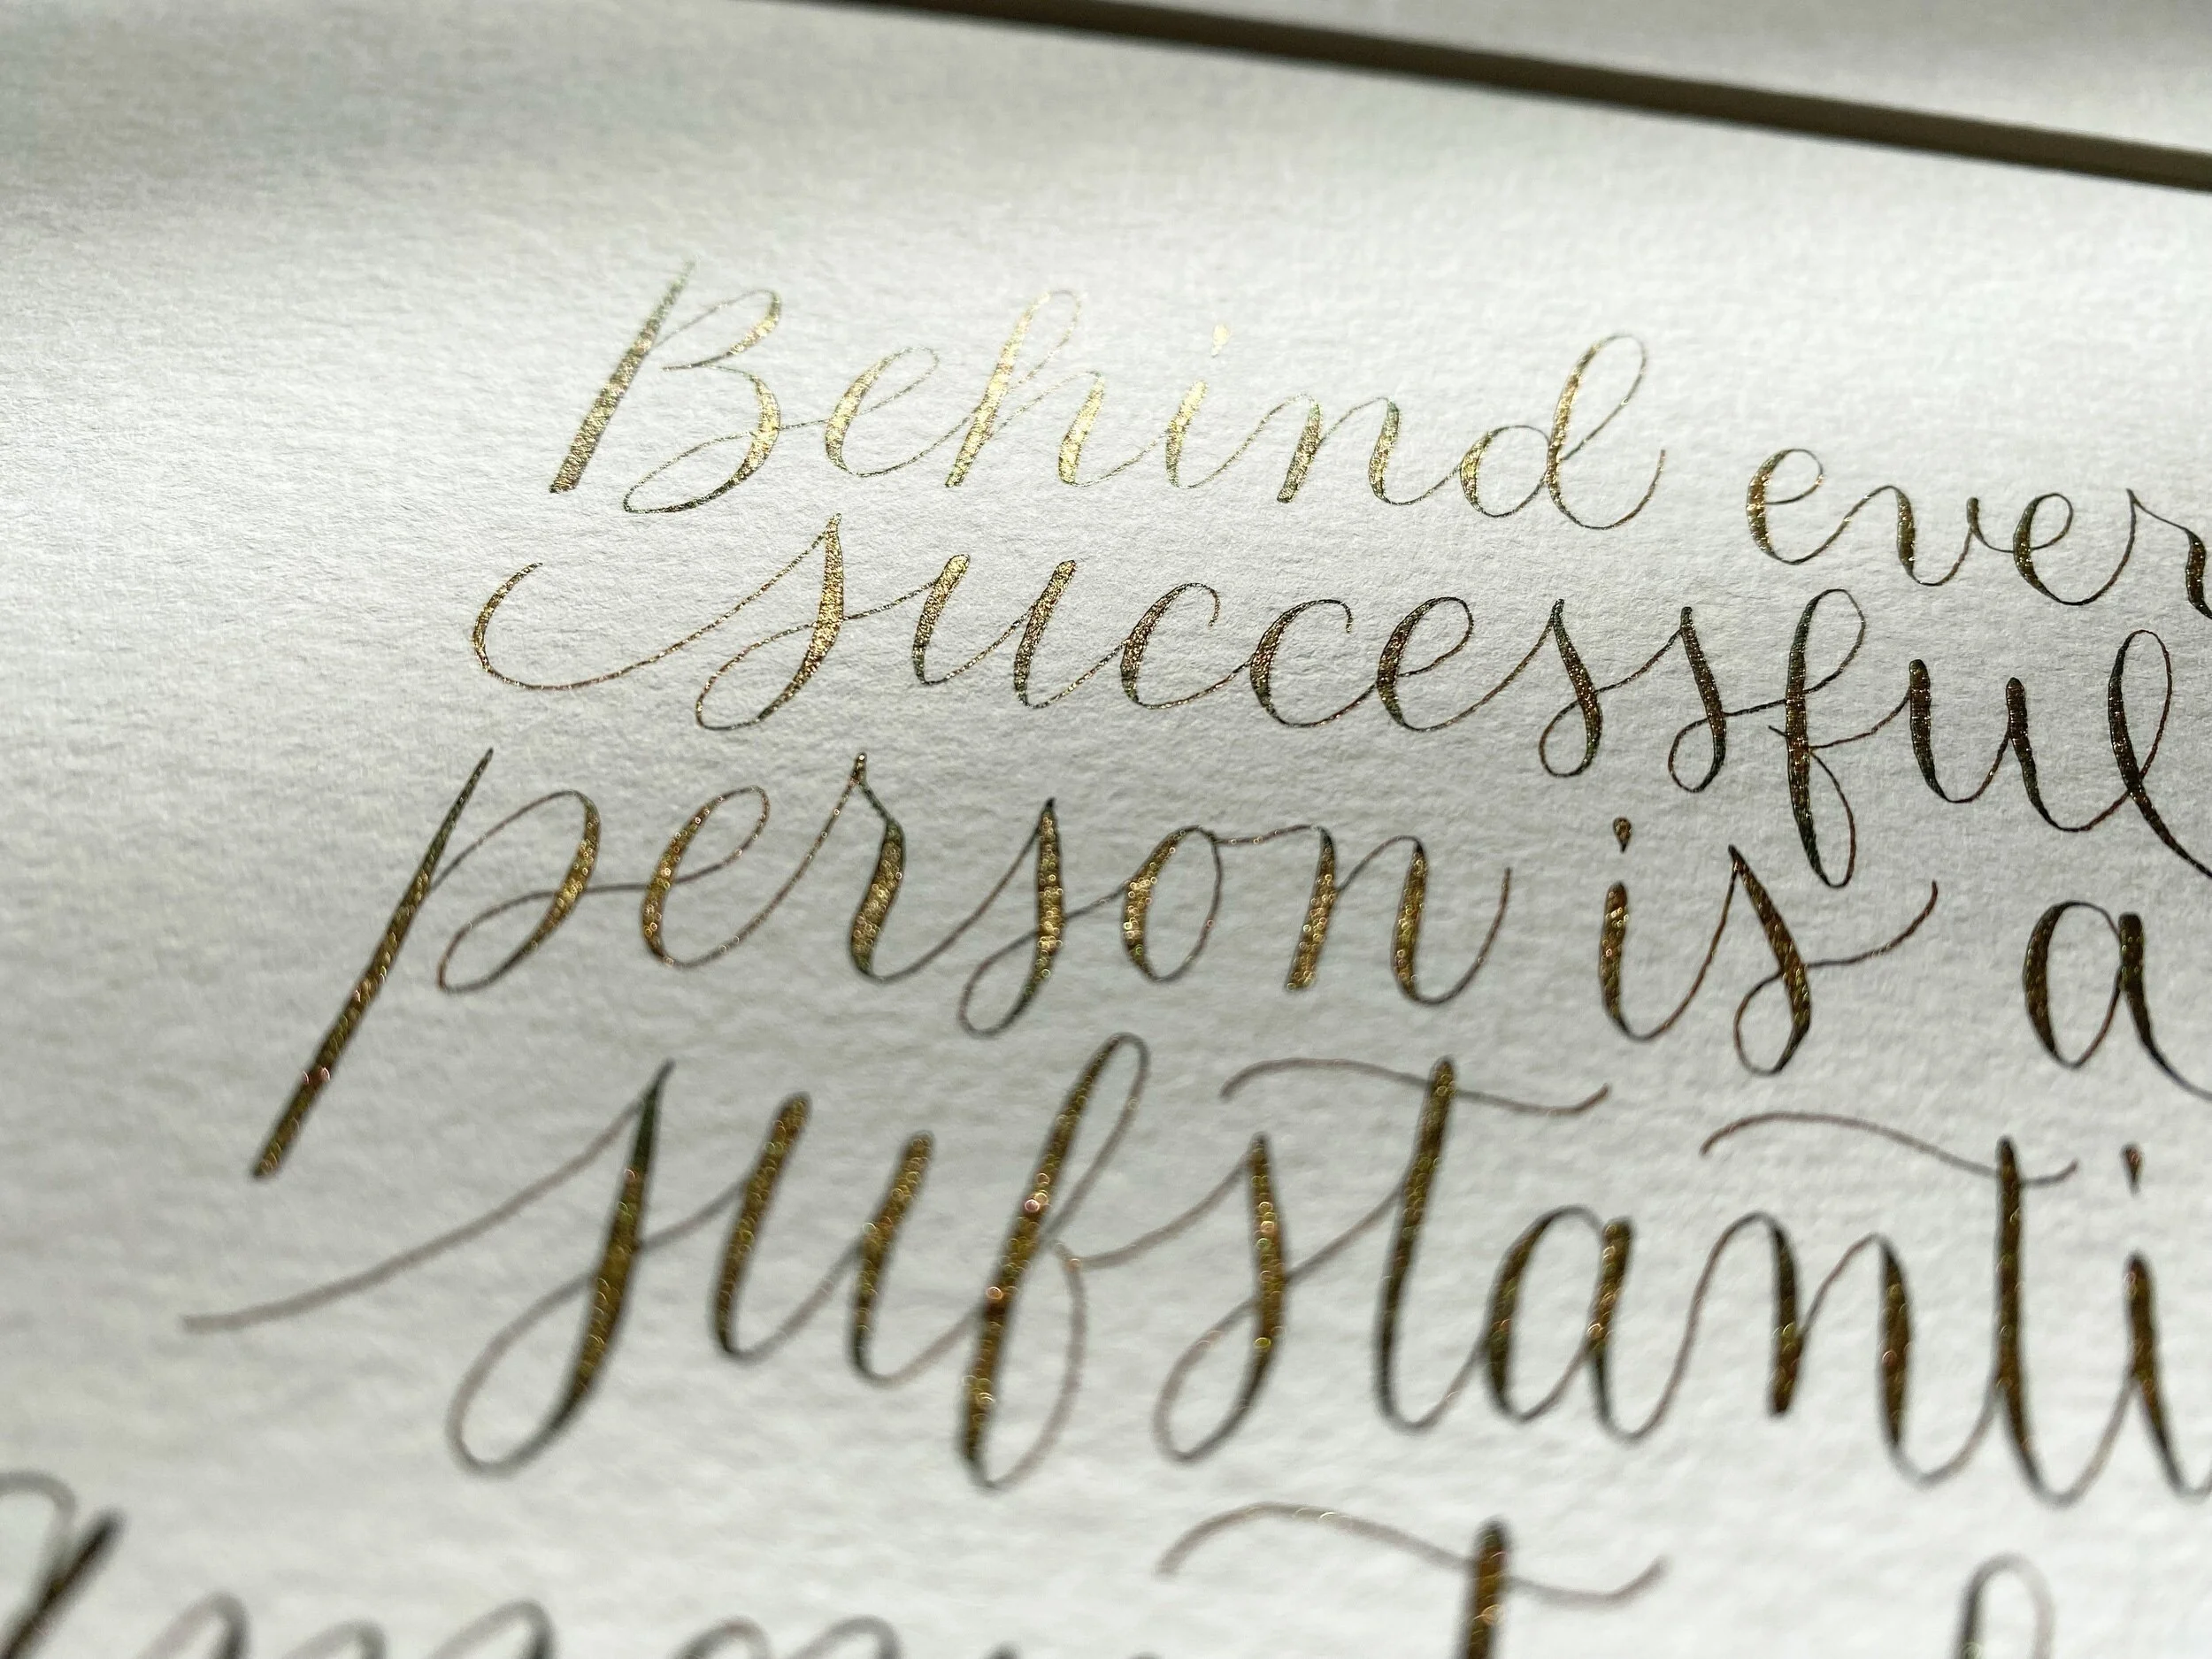 Behind ever
successful
person is a
substanti